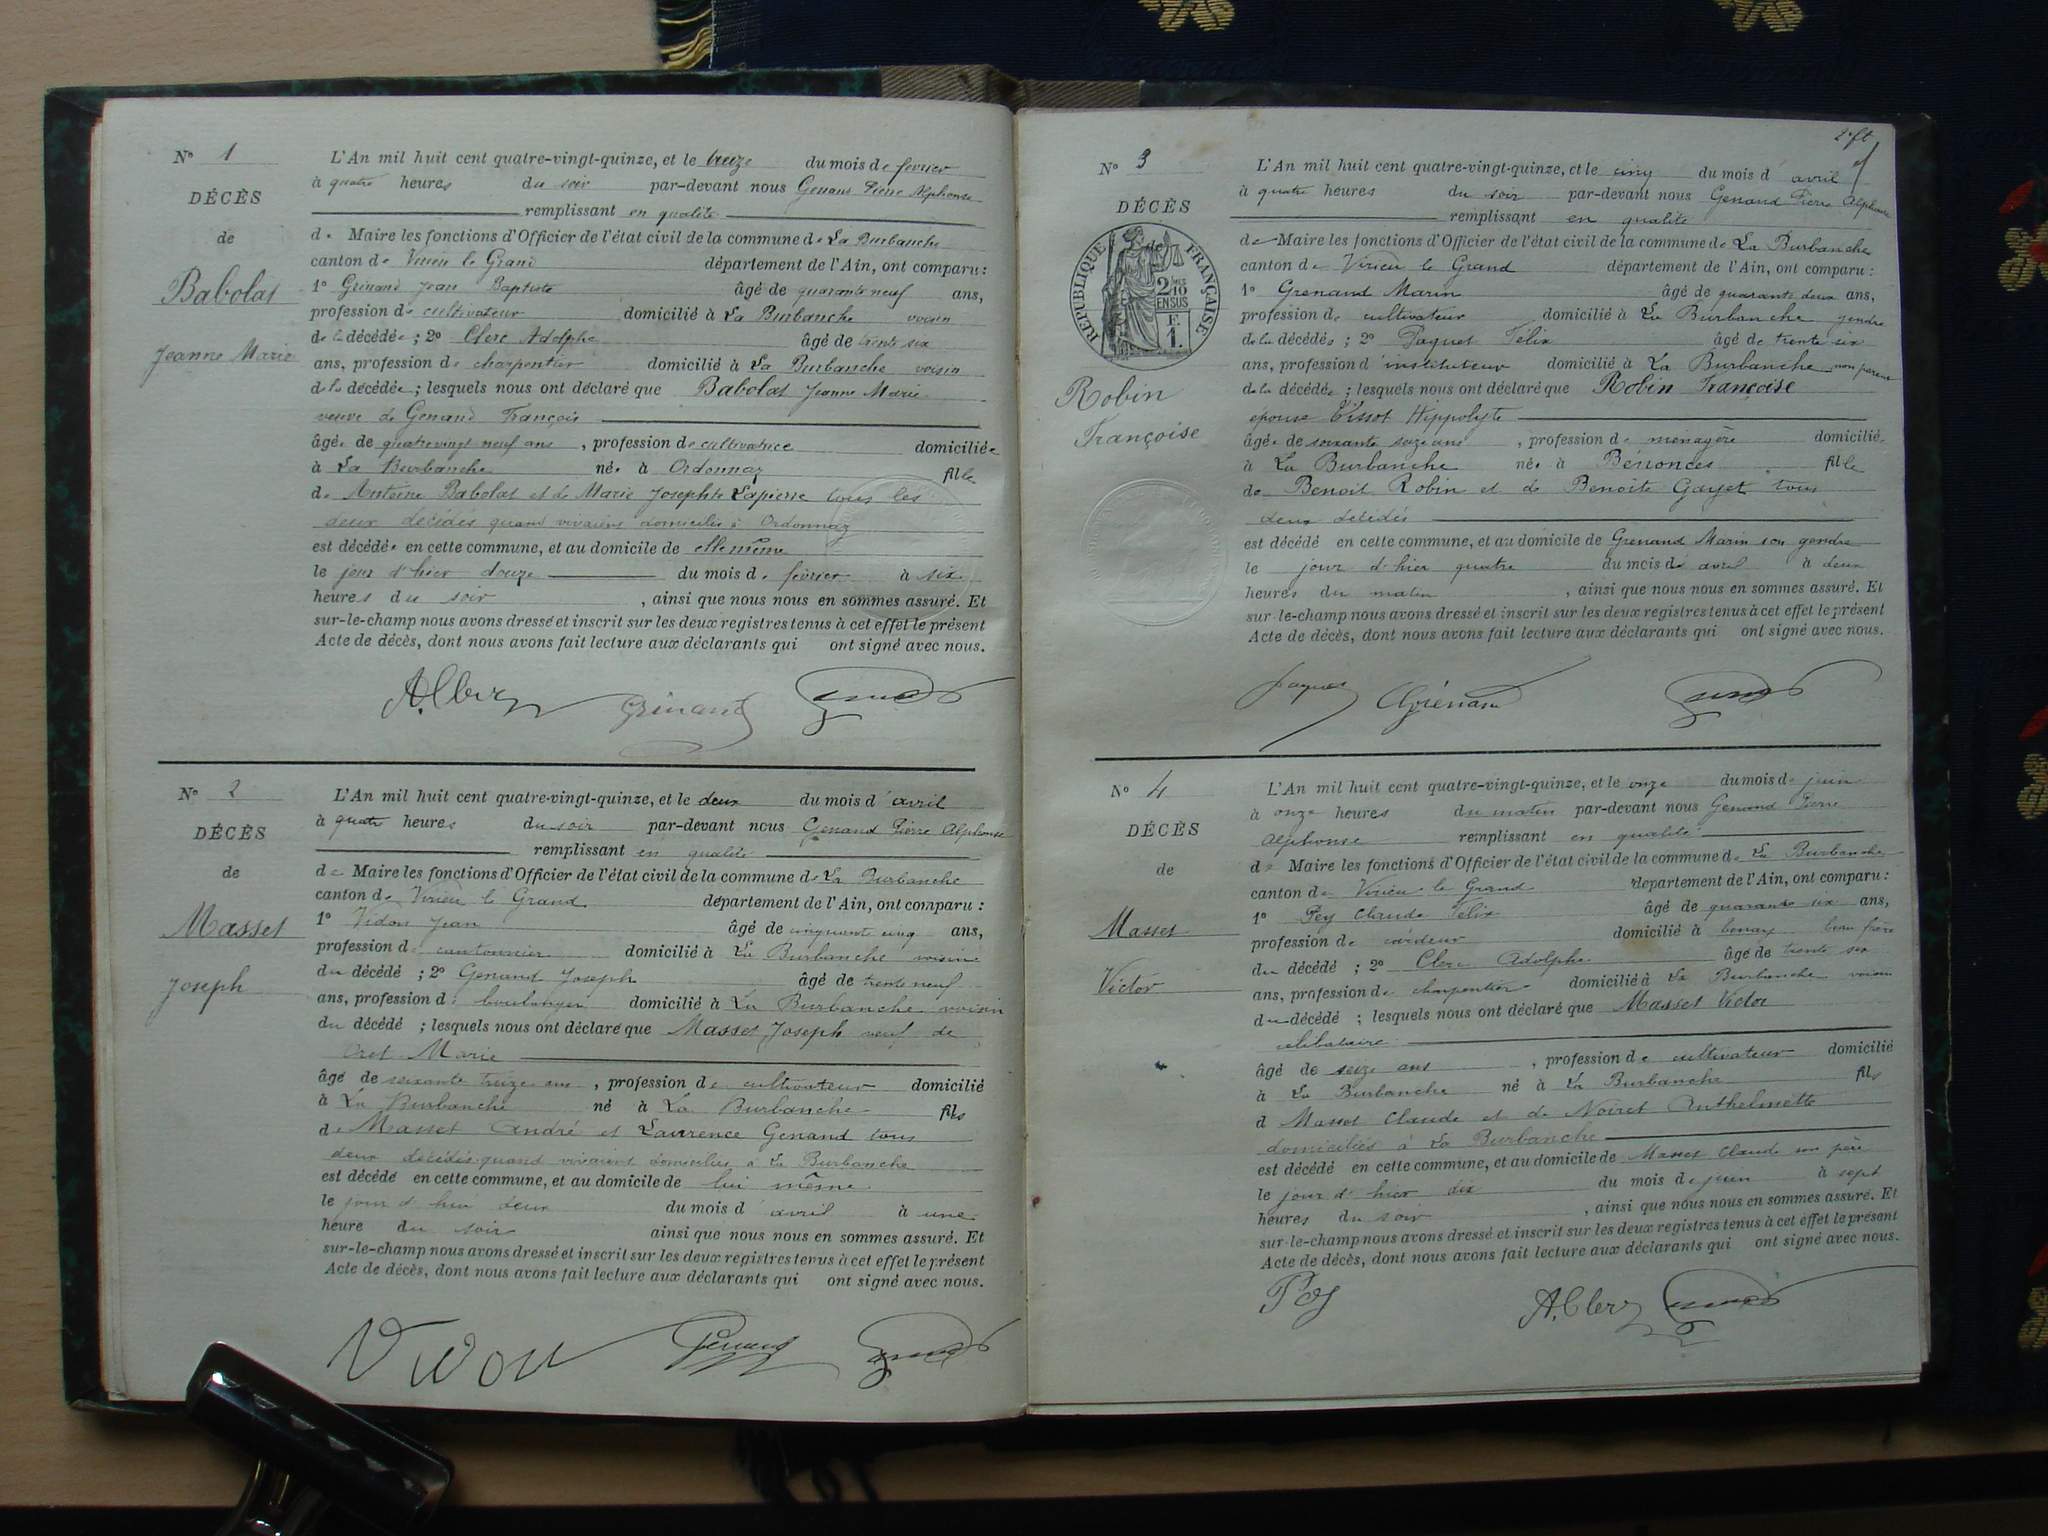 N° 1
DÉCÈS
de
Babolat
Jeanne Marie
L'An mil huit cent quatre-vingt-quinze, et le treize du mois de février
à quatre heures du soir par-devant nous Genand Pierre Alphonse
remplissant en qualité
de Maire les fonctions d'Officier de l'état civil de la commune de La Burbanche
canton de Virieu le Grand département de l'Ain, ont comparu :
1° Grinand Jean Baptiste âgé de quarante neuf ans,
profession de cultivateur domicilié à La Burbanche voisin
de la décédée ; 2° Clerc Adolphe âgé de trente six
ans, profession de charpentier domicilié à La Burbanche voisin
de la décédée ; lesquels nous ont déclaré que Babolat Jeanne Marie
veuve de Genand François
âgée de quatrevingt neuf ans, profession de cultivatrice domiciliée
à La Burbanche née à Ordonnaz fille
de Antoine Babolat et de Marie Josephte Lapierre tous les
deux décédés quand vivaient domiciliés à Ordonnaz
est décédée en cette commune, et au domicile de elle même
le jour d'hier douze du mois de février à six
heures du soir, ainsi que nous nous en sommes assuré. Et
sur-le-champ nous avons dressé et inscrit sur les deux registres tenus à cet effet le présent
Acte de décès, dont nous avons fait lecture aux déclarants qui ont signé avec nous.
A. Clerc Grinand
N° 2
DÉCÈS
de
Masset
Joseph
L'An mil huit cent quatre-vingt-quinze, et le deux du mois d'avril
à quatre heures du soir par-devant nous Genand Pierre Alphonse
remplissant en qualité
de Maire les fonctions d'Officier de l'état civil de la commune de La Burbanche
canton de Virieu le Grand département de l'Ain, ont comparu :
1° Vidon Jean âgé de cinquante cinq ans,
profession de cantonnier domicilié à La Burbanche voisin
du décédé ; 2° Genand Joseph âgé de trente neuf
ans, profession de boulanger domicilié à La Burbanche voisin
du décédé ; lesquels nous ont déclaré que Masset Joseph veuf de
Marie
âgé de soixante treize ans, profession de cultivateur domicilié
à La Burbanche né à La Burbanche fils
de Masset André et Laurence Genand tous
deux décédés quand vivaient domiciliés à La Burbanche
est décédé en cette commune, et au domicile de lui même
le jour d'hui deux du mois d'avril à une
heure du soir ainsi que nous nous en sommes assuré. Et
sur-le-champ nous avons dressé et inscrit sur les deux registres tenus à cet effet le présent
Acte de décès, dont nous avons fait lecture aux déclarants qui ont signé avec nous.
Vidon Genand
2e ft
N° 3
DÉCÈS
de
RÉPUBLIQUE FRANÇAISE
2/10 EN SUS
F. 1.
Robin
Françoise
L'An mil huit cent quatre-vingt-quinze, et le cinq du mois d'avril
à quatre heures du soir par-devant nous Genand Pierre Alphonse
remplissant en qualité
de Maire les fonctions d'Officier de l'état civil de la commune de La Burbanche
canton de Virieu le Grand département de l'Ain, ont comparu :
1° Grenand Marin âgé de quarante deux ans,
profession de cultivateur domicilié à La Burbanche gendre
de la décédée ; 2° Paquet Félix âgé de trente six
ans, profession d'instituteur domicilié à La Burbanche non parent
de la décédée ; lesquels nous ont déclaré que Robin Françoise
épouse Tissot Hippolyte
âgée de soixante seize ans, profession de ménagère domiciliée
à La Burbanche née à Bénonces fille
de Benoit Robin et de Benoîte Gayet tous
deux décédés
est décédé en cette commune, et au domicile de Grenand Marin son gendre
le jour d'hier quatre du mois de avril à deux
heures du matin, ainsi que nous nous en sommes assuré. Et
sur-le-champ nous avons dressé et inscrit sur les deux registres tenus à cet effet le présent
Acte de décès, dont nous avons fait lecture aux déclarants qui ont signé avec nous.
Paquet Grenand
N° 4
DÉCÈS
de
Masset
Victor
L'An mil huit cent quatre-vingt-quinze, et le onze du mois de juin
à onze heures du matin par-devant nous Genand Pierre
Alphonse remplissant en qualité
de Maire les fonctions d'Officier de l'état civil de la commune de La Burbanche
canton de Virieu le Grand département de l'Ain, ont comparu :
1° Pey Claude Félix âgé de quarante six ans,
profession de domicilié à beau frère
du décédé ; 2° Clerc Adolphe âgé de trente six
ans, profession de charpentier domicilié à La Burbanche voisin
du décédé ; lesquels nous ont déclaré que Masset Victor
célibataire
âgé de seize ans, profession de cultivateur domicilié
à La Burbanche né à La Burbanche fils
d Masset Claude et de Noiret Anthelmette
domiciliés à La Burbanche
est décédé en cette commune, et au domicile de Masset Claude son père
le jour d'hier dix du mois de juin à sept
heures du soir, ainsi que nous nous en sommes assuré. Et
sur-le-champ nous avons dressé et inscrit sur les deux registres tenus à cet effet le présent
Acte de décès, dont nous avons fait lecture aux déclarants qui ont signé avec nous.
Pey A. Clerc